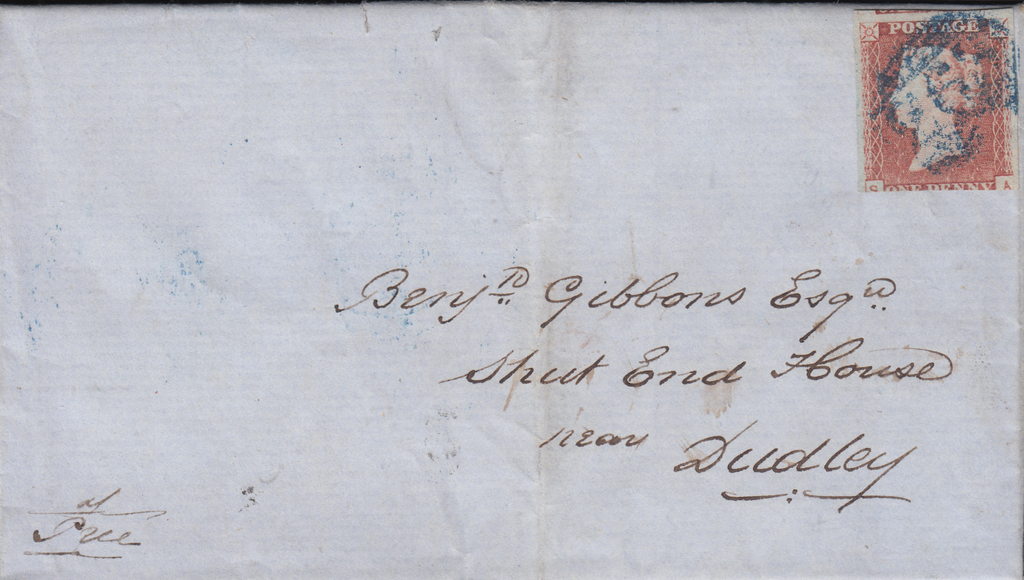 POSTAGE
S ONE PENNY A
Benjn Gibbons Esqre
Shut End House
near
Dudley